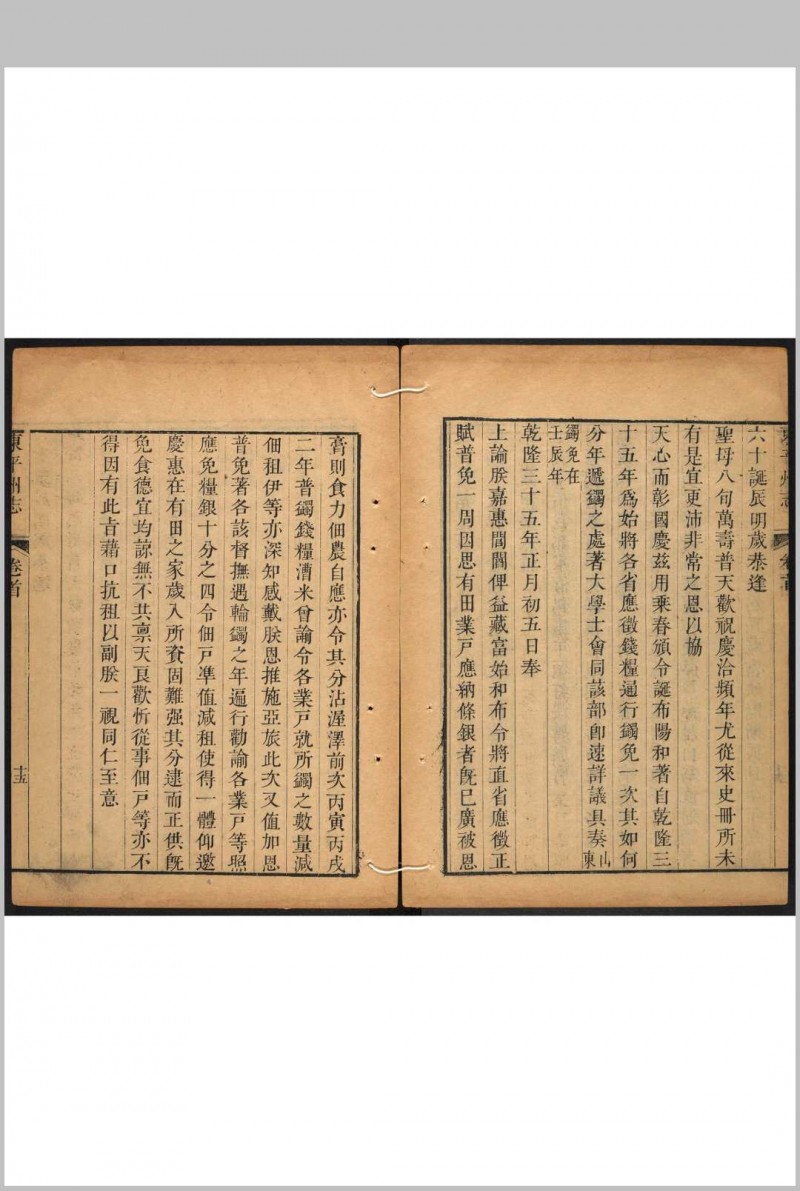 六十誕辰明歲恭逢
聖母八旬萬壽普天歡祝慶洽頻年尤從來史冊所未
有是宜更沛非常之恩以協
天心而彰國慶兹用乘春頒令誕布陽和著自乾隆三
十五年爲始將各省應徵錢糧通行蠲免一次其如何
分年遞蠲之處著大學士會同該部卽速詳議具奏山東
蠲免在壬辰年
乾隆三十五年正月初五日奉
上諭朕嘉惠閭閻俾益藏富始和布令將直省應徵正
賦普免一周因思有田業戸應納條銀者旣已廣被恩
膏則食力佃農自應亦令其分沾渥澤前次丙寅丙戌
二年普蠲錢糧漕米曾諭令各業戸就所蠲之數量減
佃租伊等亦深知感戴朕恩推施亞旅此次又值加恩
普免著各該督撫遇輪蠲之年遍行勸諭各業戸等照
應免糧銀十分之四令佃戸準值減租使得一體仰邀
慶惠在有田之家歲入所資固難强其分逮而正供旣
免食德宜均諒無不共稟天良歡忻從事佃戸等亦不
得因有此旨藉口抗租以副朕一視同仁至意
東平州志
卷首
十五